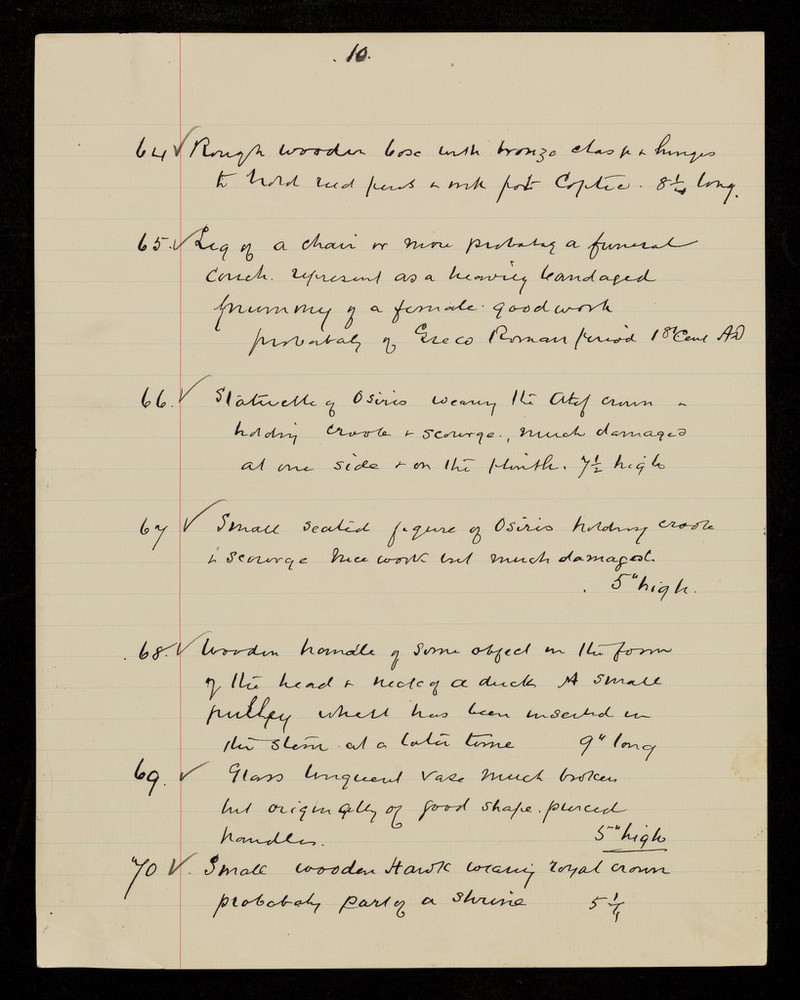 . 10.
64 ✓ Rough wooden box with bronze clasp & hinges
to hold reed pens & ink pot Coptic. 8½ long.
65. ✓ Leg of a chair or more probably a funeral
Couch. represent as a heavily bandaged
mummy of a female. good work
probably of Greco Roman period 1st Cent AD
66. ✓ Statuette of Osiris wearing the Atef crown &
holding crook & scourge., much damaged
at one side & on the plinth. 7½ high
67 ✓ Small seated figure of Osiris holding crook
& scourge nice work but much damaged.
. 5" high.
. 68. ✓ Wooden handle of some object in the form
of the head & neck of a duck A small
pulley wheel has been inserted in
the stem at a later time 9" long
69. ✓ Glass Unguent Vase much broken
but originally of good shape. pierced
handles. 5" high
70 ✓. Small wooden Hawk wearing royal crown
probably part of a shrine 5